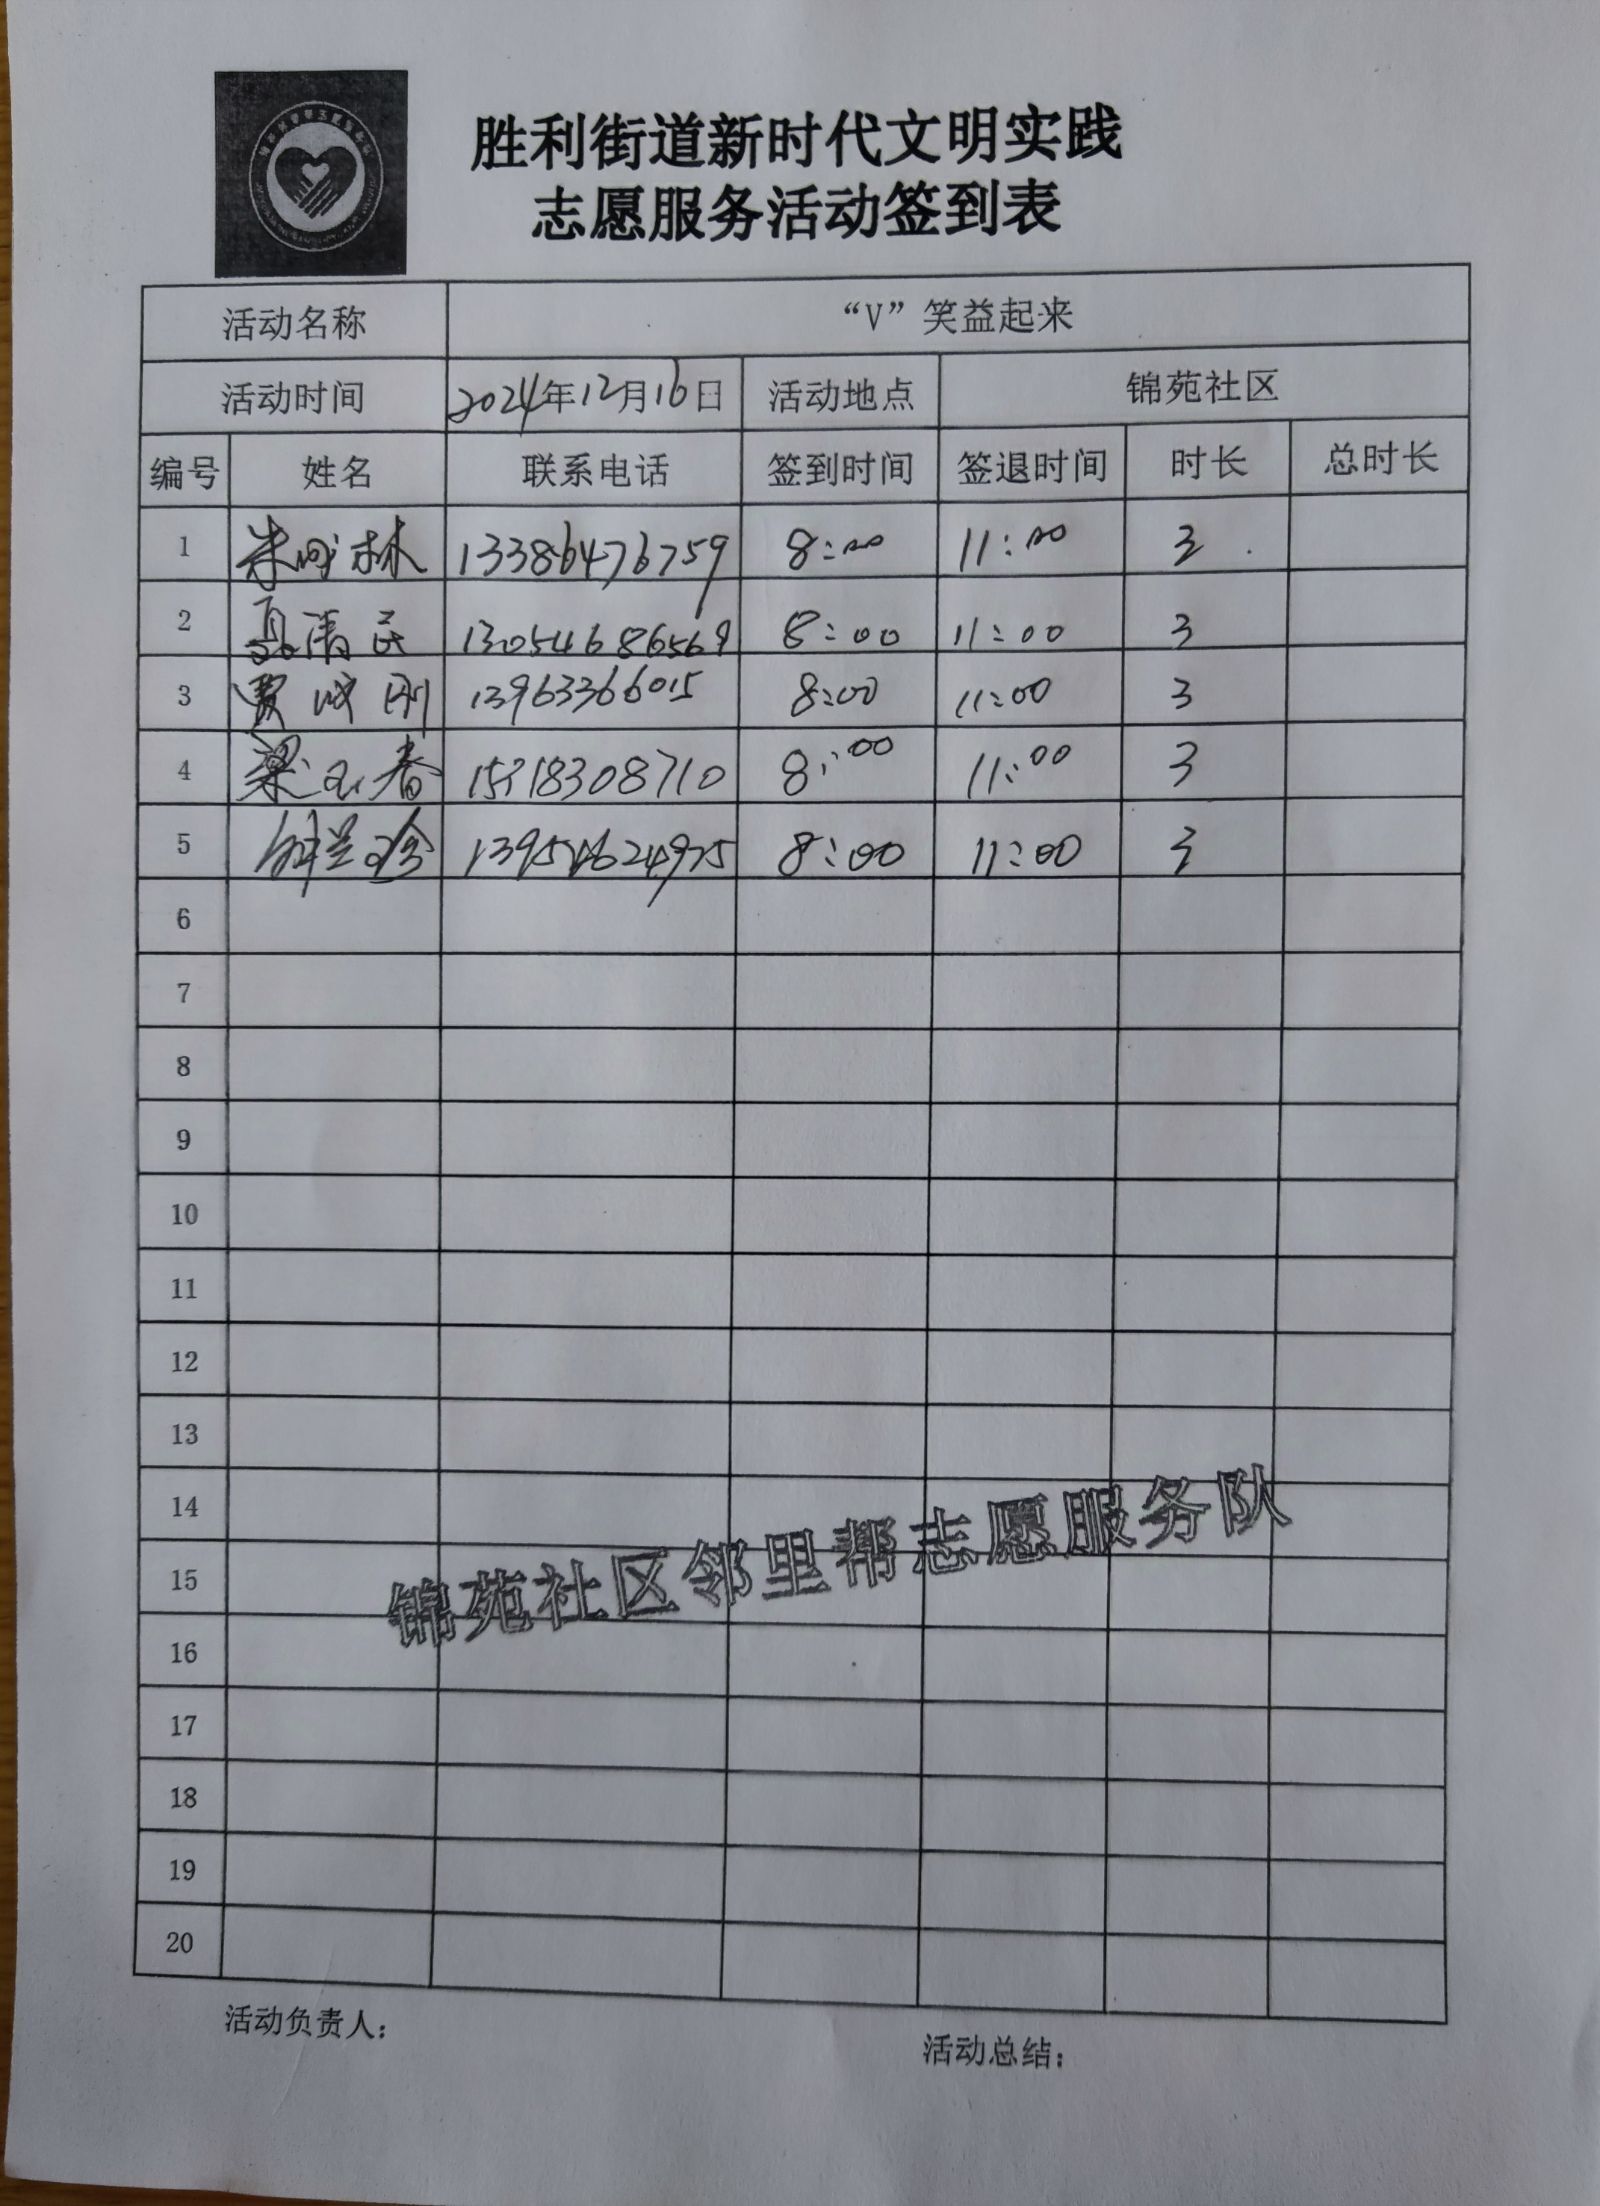 胜利街道新时代文明实践
志愿服务活动签到表
活动名称 “V”笑益起来
活动时间 2024年12月16日 活动地点 锦苑社区
编号 姓名 联系电话 签到时间 签退时间 时长 总时长
1 林 13386476759 8:00 11:00 3
2 清民 13054686569 8:00 11:00 3
3 贾 刚 13963366015 8:00 11:00 3
4 梁玉春 8:00 11:00 3
5 钟兰珍 13954624975 8:00 11:00 3
6
7
8
9
10
11
12
13
14
15
锦苑社区邻里帮志愿服务队
16
17
18
19
20
活动负责人：
活动总结：